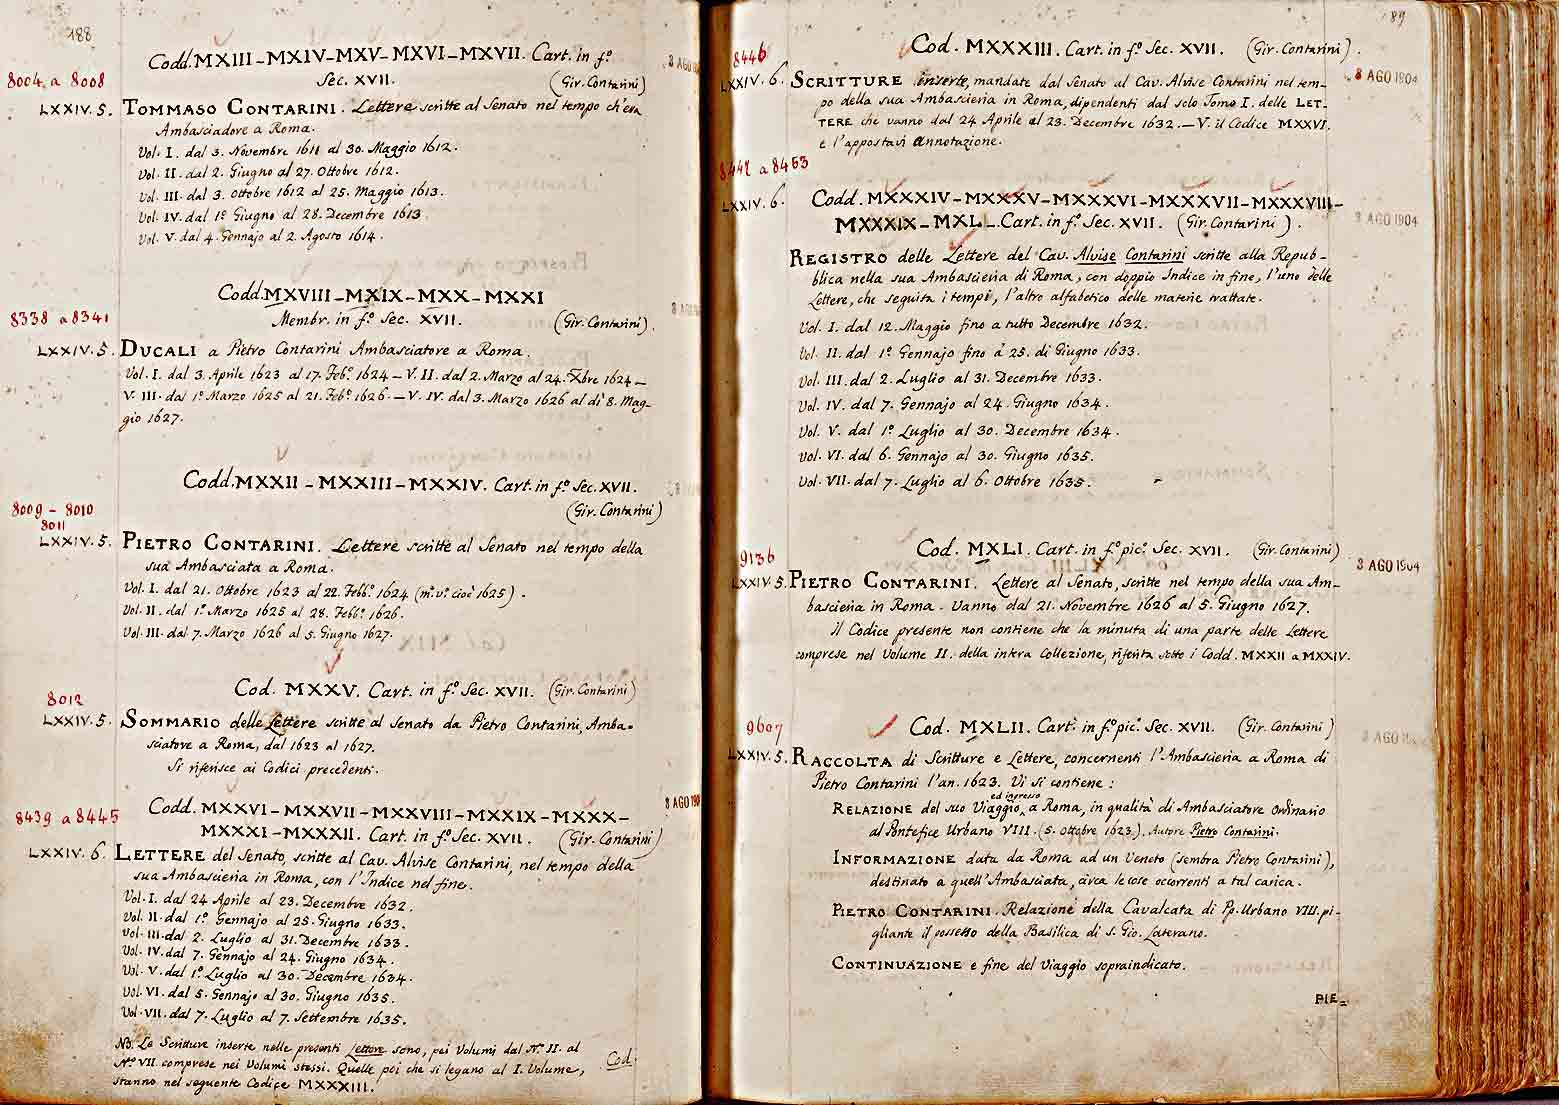 188
Codd. MXIII – MXIV – MXV – MXVI – MXVII. Cart. in f.º
Sec. XVII. (Gir. Contarini)
8004 a 8008
LXXIV. 5. TOMMASO CONTARINI. Lettere scritte al Senato nel tempo ch'era
Ambasciadore a Roma.
Vol. I. dal 3. Novembre 1611 al 30. Maggio 1612.
Vol. II. dal 2. Giugno al 27. Ottobre 1612.
Vol. III. dal 3. Ottobre 1612 al 25. Maggio 1613.
Vol. IV. dal 1º Giugno al 28. Decembre 1613.
Vol. V. dal 4. Gennajo al 2. Agosto 1614.
Codd. MXVIII – MXIX – MXX – MXXI
8338 a 8341
Membr. in f.º Sec. XVII. (Gir. Contarini).
LXXIV. 5. DUCALI a Pietro Contarini Ambasciatore a Roma.
Vol. I. dal 3. Aprile 1623 al 17. Feb.º 1624 – V. II. dal 2. Marzo al 24. Xbre 1624 –
V. III. dal 1º Marzo 1625 al 21. Feb.º 1626. – V. IV. dal 3. Marzo 1626 al dì 8. Mag-
gio 1627.
Codd. MXXII – MXXIII – MXXIV. Cart. in f.º Sec. XVII.
(Gir. Contarini)
8009 – 8010
8011
LXXIV. 5. PIETRO CONTARINI. Lettere scritte al Senato nel tempo della
sua Ambasciata a Roma.
Vol. I. dal 21. Ottobre 1623 al 22. Febb.º 1624 (m.º v.º cioè 1625).
Vol. II. dal 1º Marzo 1625 al 28. Febb.º 1626.
Vol. III. dal 7. Marzo 1626 al 5. Giugno 1627.
Cod. MXXV. Cart. in f.º Sec. XVII. (Gir. Contarini)
8012
LXXIV. 5. SOMMARIO delle Lettere scritte al Senato da Pietro Contarini, Amba-
sciatore a Roma, dal 1623 al 1627.
Si riferisce ai Codici precedenti.
Codd. MXXVI – MXXVII – MXXVIII – MXXIX – MXXX –
8439 a 8445
8 AGO 190
MXXXI – MXXXII. Cart. in f.º Sec. XVII. (Gir. Contarini)
LXXIV. 6. LETTERE del Senato, scritte al Cav. Alvise Contarini, nel tempo della
sua Ambascieria in Roma, con l'Indice nel fine.
Vol. I. dal 24 Aprile al 23. Decembre 1632.
Vol. II. dal 1º. Gennajo al 25. Giugno 1633.
Vol. III. dal 2. Luglio al 31. Decembre 1633.
Vol. IV. dal 7. Gennajo al 24. Giugno 1634.
Vol. V. dal 1º Luglio al 30. Decembre 1634.
Vol. VI. dal 5. Gennajo al 30. Giugno 1635.
Vol. VII. dal 7. Luglio al 7. Settembre 1635.
NB. Le Scritture inserte nelle presenti Lettere sono, pei Volumi dal Nº. II. al
Nº. VII. comprese nei Volumi stessi. Quelle poi che si legano al I. Volume,
stanno nel seguente Codice MXXXIII.
Cod.
189
Cod. MXXXIII. Cart. in f.º Sec. XVII. (Gir. Contarini).
8446
LXXIV. 6. SCRITTURE inserte, mandate dal Senato al Cav. Alvise Contarini nel tem-
8 AGO 1904
po della sua Ambascieria in Roma, dipendenti dal solo Tomo I. delle LET-
TERE che vanno dal 24 Aprile al 23. Decembre 1632. – V. il Codice MXXVI.
e l'appostavi annotazione.
8447 a 8453
LXXIV. 6. Codd. MXXXIV – MXXXV – MXXXVI – MXXXVII – MXXXVIII –
MXXXIX – MXL – Cart. in f.º Sec. XVII. (Gir. Contarini).
8 AGO 1904
REGISTRO delle Lettere del Cav. Alvise Contarini scritte alla Repub-
blica nella sua Ambascieria di Roma, con doppio Indice in fine, l'uno delle
Lettere, che seguita i tempi, l'altro alfabetico delle materie trattate.
Vol. I. dal 12. Maggio fino a tutto Decembre 1632.
Vol. II. dal 1º. Gennajo fino à 25. di Giugno 1633.
Vol. III. dal 2. Luglio al 31. Decembre 1633.
Vol. IV. dal 7. Gennajo al 24. Giugno 1634.
Vol. V. dal 1º. Luglio al 30. Decembre 1634.
Vol. VI. dal 6. Gennajo al 30. Giugno 1635.
Vol. VII. dal 7. Luglio al 6. Ottobre 1635.
Cod. MXLI. Cart. in f.º pic.º Sec. XVII. (Gir. Contarini)
9136
3 AGO 1904
LXXIV. 5. PIETRO CONTARINI. Lettere al Senato, scritte nel tempo della sua Am-
bascieria in Roma. Vanno dal 21. Novembre 1626 al 5. Giugno 1627.
Il Codice presente non contiene che la minuta di una parte delle Lettere
comprese nel Volume II. della intera Collezione, riferita sotto i Codd. MXXII a MXXIV.
Cod. MXLII. Cart. in f.º pic.º Sec. XVII. (Gir. Contarini)
9607
LXXIV. 5. RACCOLTA di Scritture e Lettere, concernenti l'Ambascieria a Roma di
Pietro Contarini l'an. 1623. Vi si contiene:
ed ingresso
RELAZIONE del suo Viaggio, a Roma, in qualità di Ambasciatore Ordinario
al Pontefice Urbano VIII. (5. Ottobre 1623). Autore Pietro Contarini.
INFORMAZIONE data da Roma ad un Veneto (sembra Pietro Contarini),
destinato a quell'Ambasciata, circa le cose occorrenti a tal carica.
PIETRO CONTARINI. Relazione della Cavalcata di Pp. Urbano VIII. pi-
gliante il possesso della Basilica di S. Gio. Laterano.
CONTINUAZIONE e fine del Viaggio sopraindicato.
PIE-